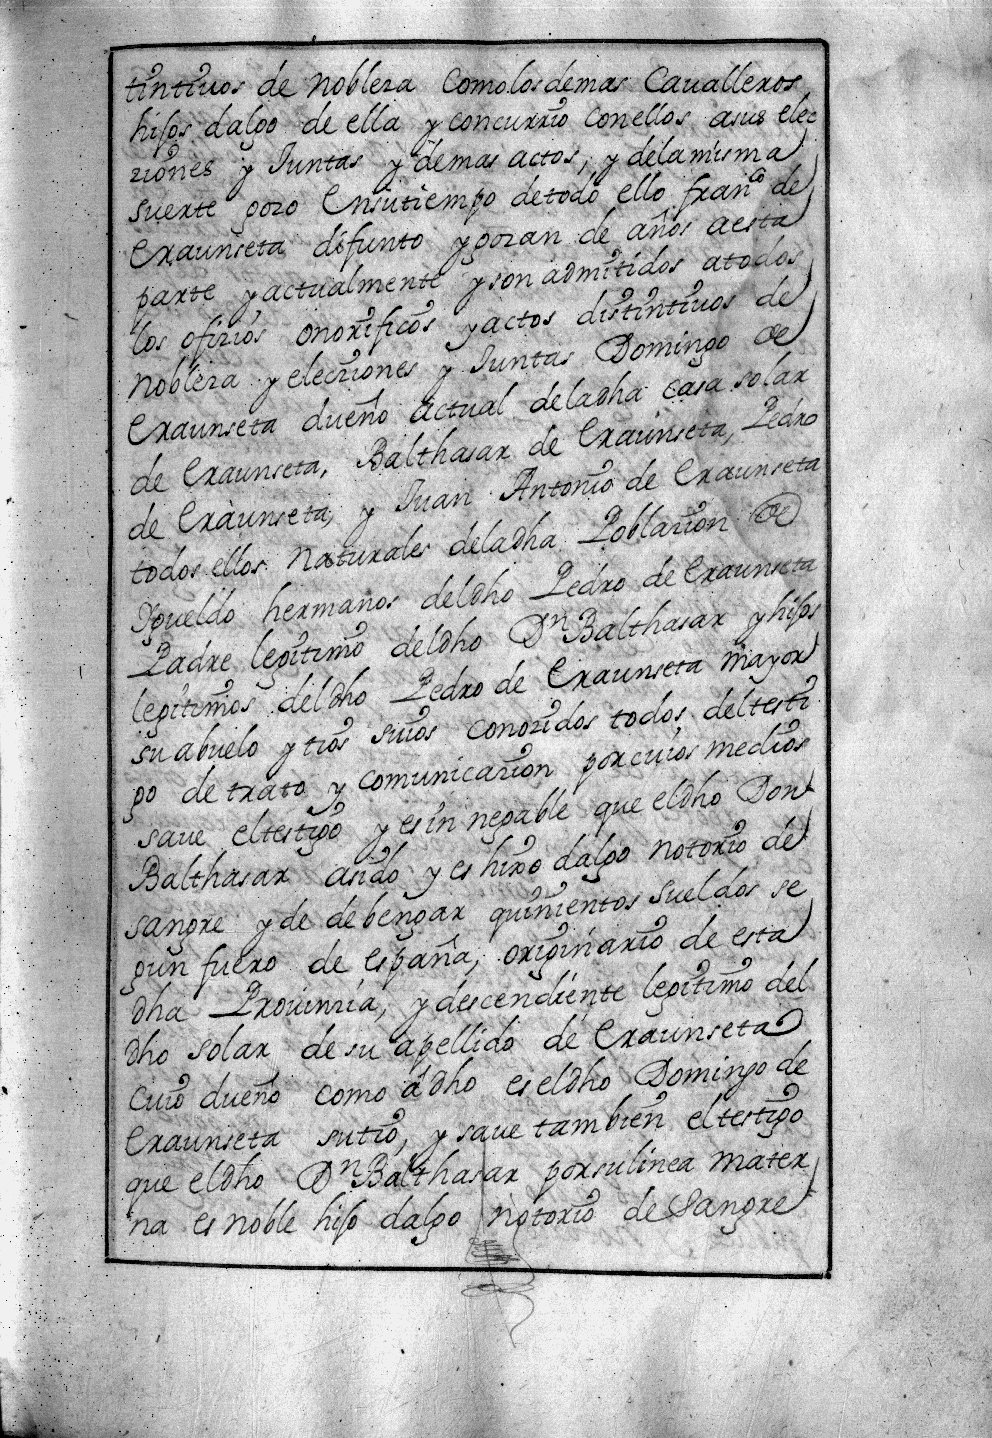 tintiuos de nobleza Como los demas Caualleros
hijos dalgo de ella y concurrio Conellos asus elec
ziones y Juntas y demas actos, y dela misma
suerte gozo Ensutiempo detodo ello fran.co de
Eraunseta difunto y gozan de años aesta
parte y actualmente y son admitidos atodos
los ofizios onorificos y actos distintiuos de
nobleza y elecziones y Juntas Domingo de
Eraunseta dueño actual deladha casa solar
de Eraunseta, Balthasar de Eraunseta, Pedro
de Eraunseta, y Juan Antonio de Eraunseta
todos ellos Naturales deladha Poblazion de
Ygueldo hermanos deldho Pedro de Eraunseta
Padre legitimo deldho Dn Balthasar y hijos
legitimos deldho Pedro de Eraunseta mayor
su abuelo y tios suios conozidos todos deltesti
go de trato y comunicazion por cuios medios
saue eltestigo y es in negable que eldho Don
Balthasar asido y es hixo dalgo notorio de
sangre y de debengar quinientos sueldos se
gun fuero de españa, originario de esta
dha Prouinzia, y descendiente legitimo del
dho solar de su apellido de Eraunseta
Cuio dueño como ádho es eldho Domingo de
Eraunseta sutio, y saue tambien eltestigo
que eldho Dn Balthasar porsulinea mater
na es noble hijo dalgo notorio de Sangre